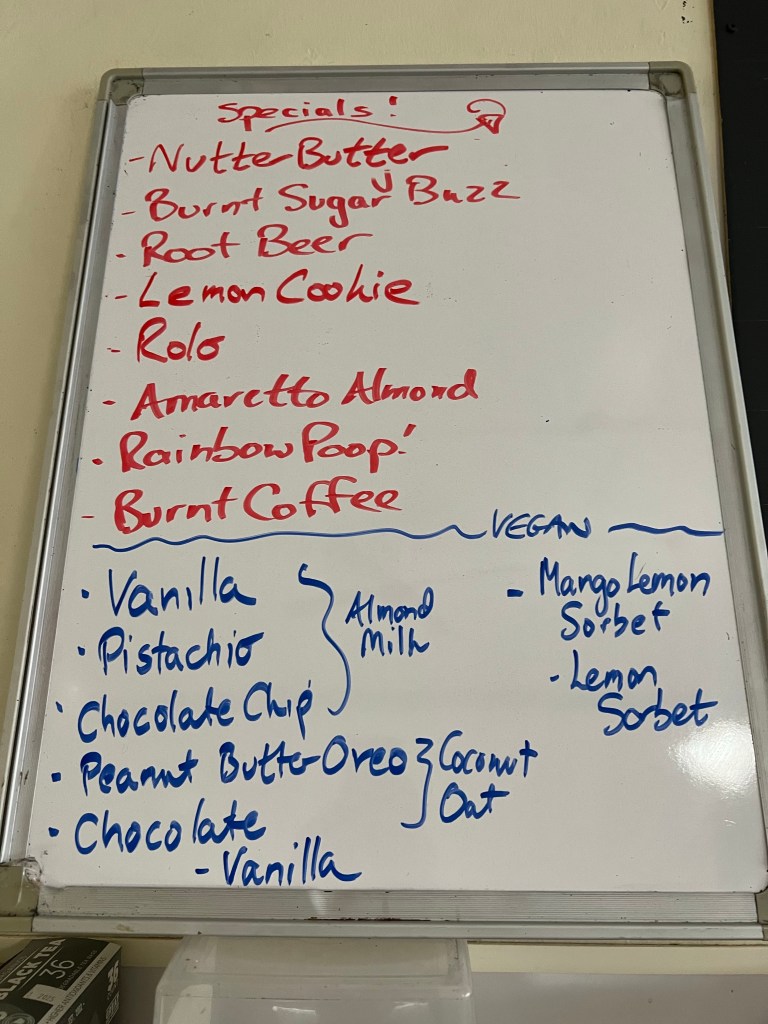 Specials!
- Nutter Butter
- Burnt Sugar Buzz
- Root Beer
- Lemon Cookie
- Rolo
- Amaretto Almond
- Rainbow Poop!
- Burnt Coffee
VEGAN
- Vanilla
- Pistachio
- Chocolate Chip
Almond
Milk
- Peanut Butter Oreo
- Chocolate
- Vanilla
Coconut
Oat
- Mango Lemon
Sorbet
- Lemon
Sorbet
BLACK TEA
36